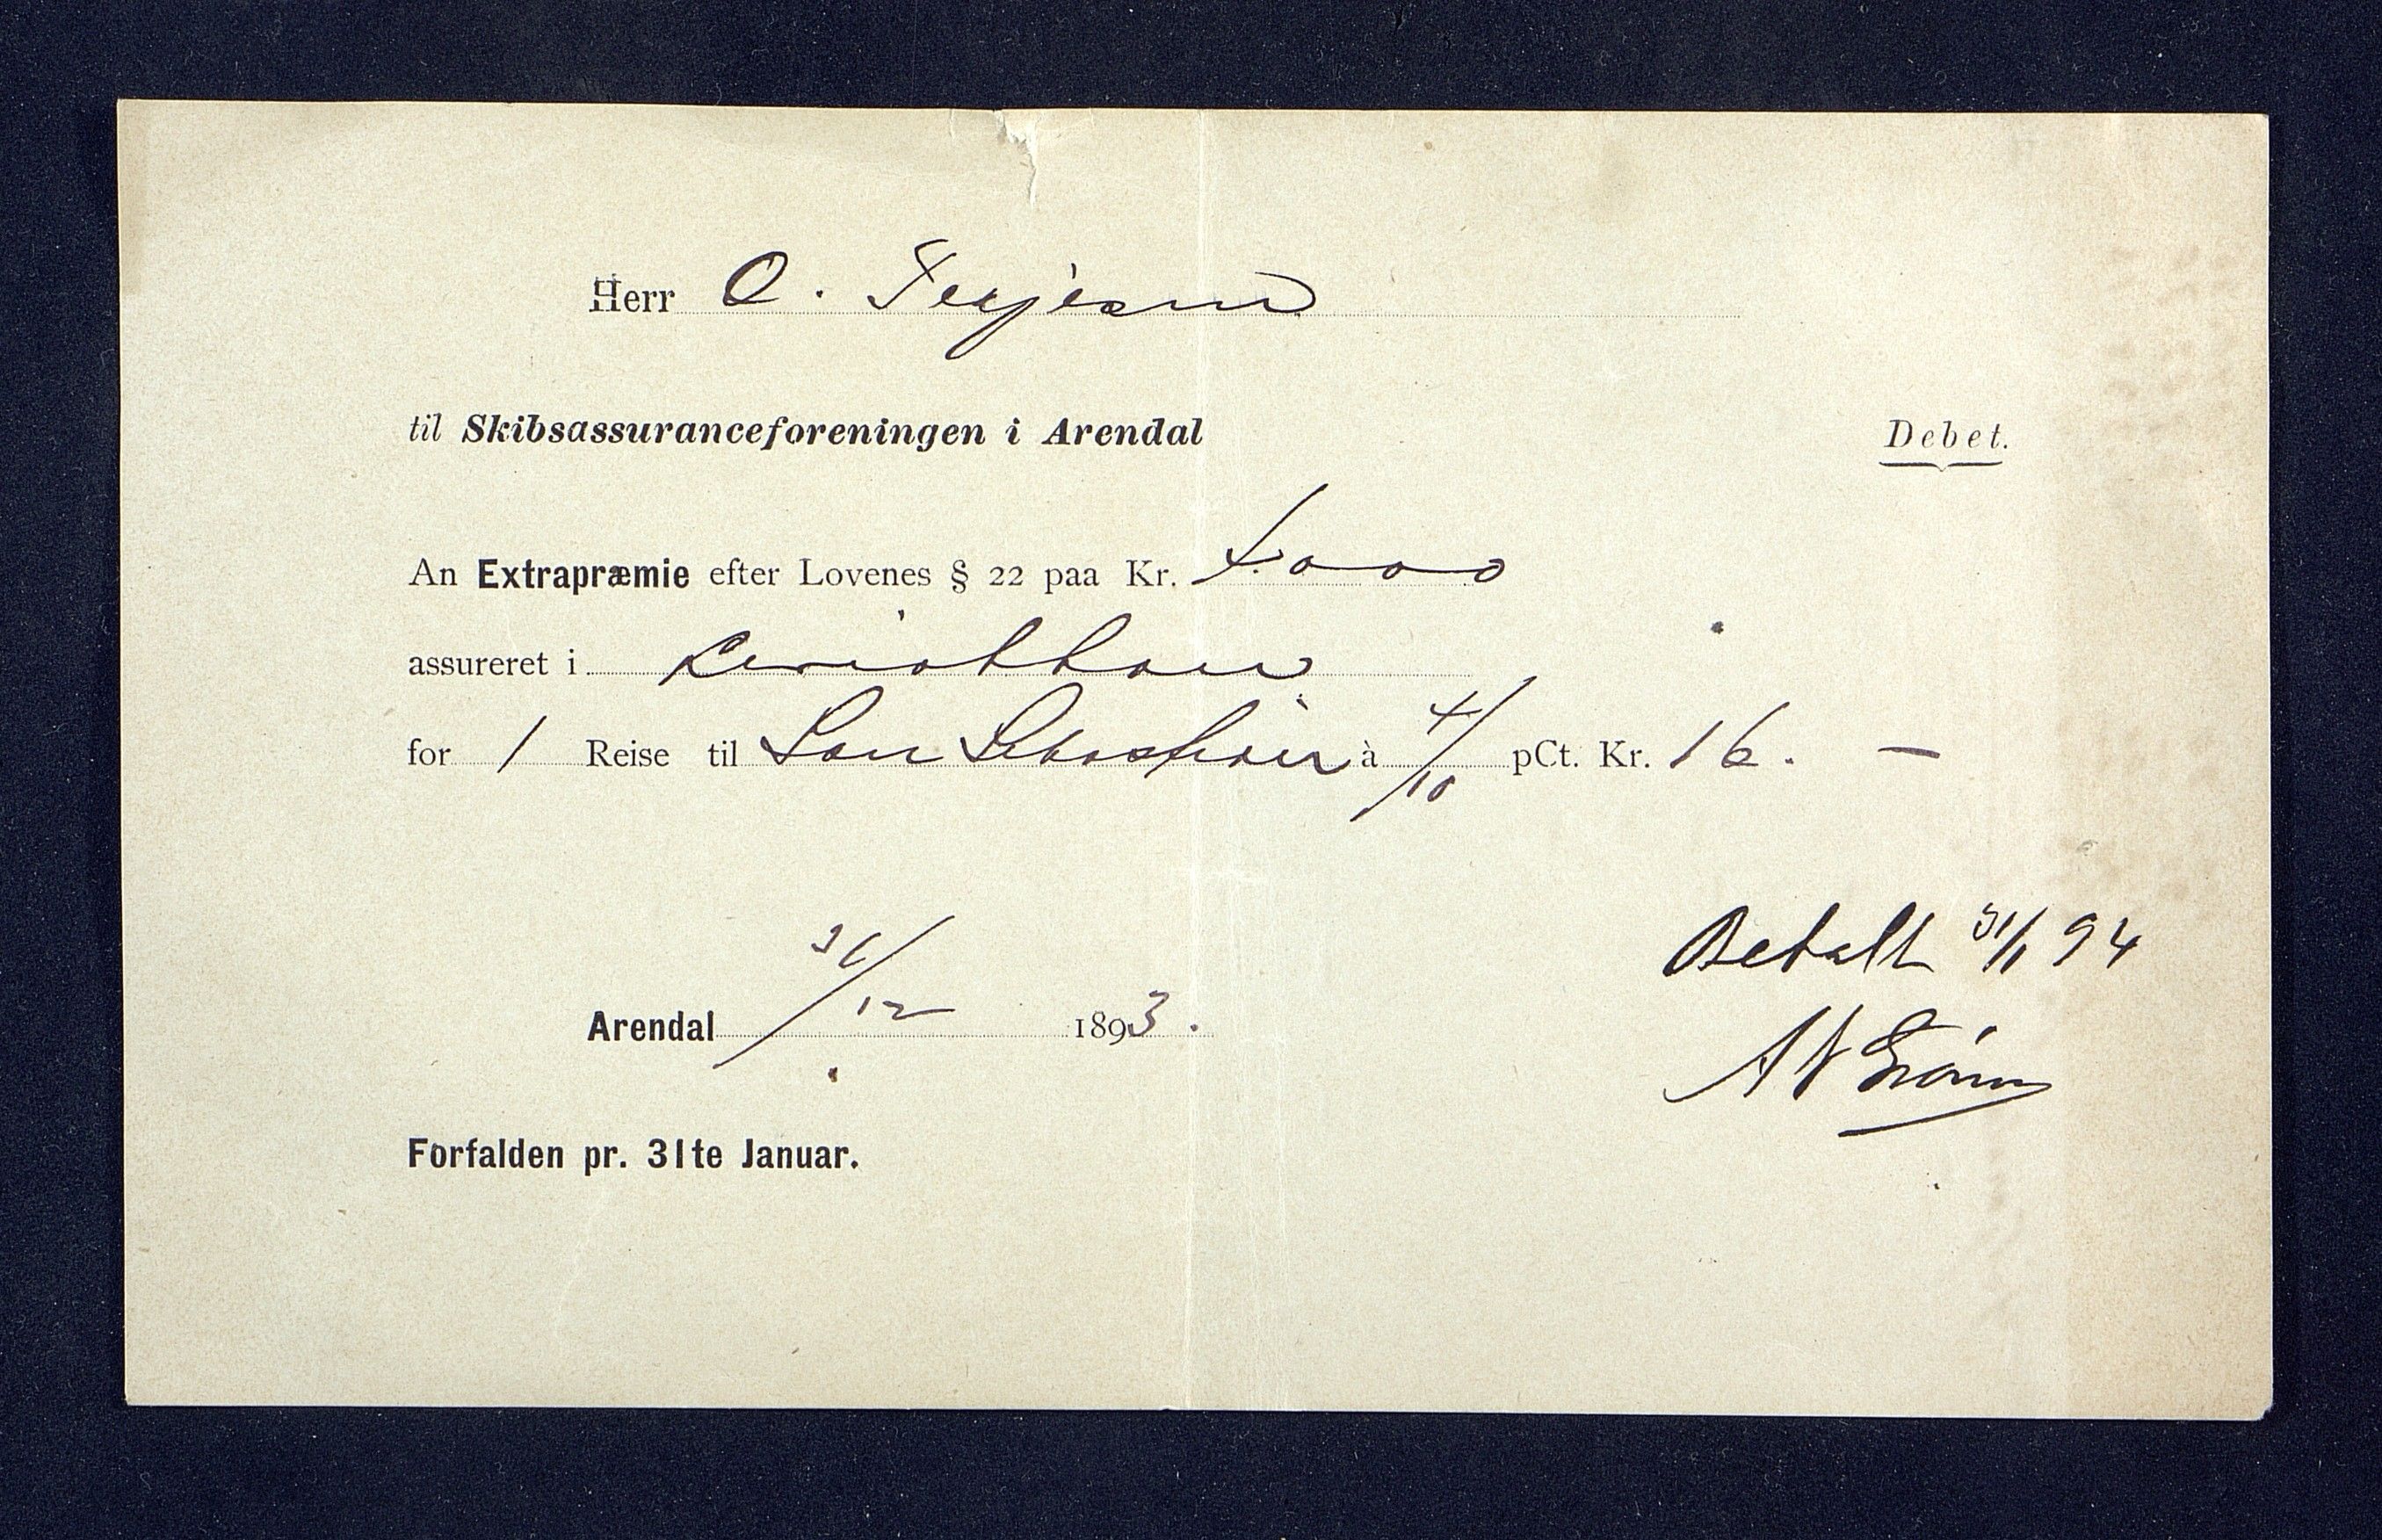 Herr O. Terjesen
til Skibsassuranceforeningen i Arendal Debet.
An Extrapræmie efter Lovenes § 22 paa Kr. 4000
assureret i
for 1 Reise til San Sebastian à 4/10 pCt. Kr. 16. —
Betalt 31/1 94
Arendal 31/12 1893.
Forfalden pr. 31te Januar.